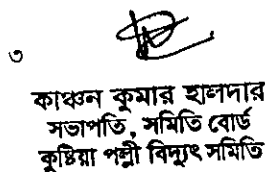 ৩
কাঞ্চন কুমার হালদার
সভাপতি, সমিতি বোর্ড
কুষ্টিয়া পল্লী বিদ্যুৎ সমিতি